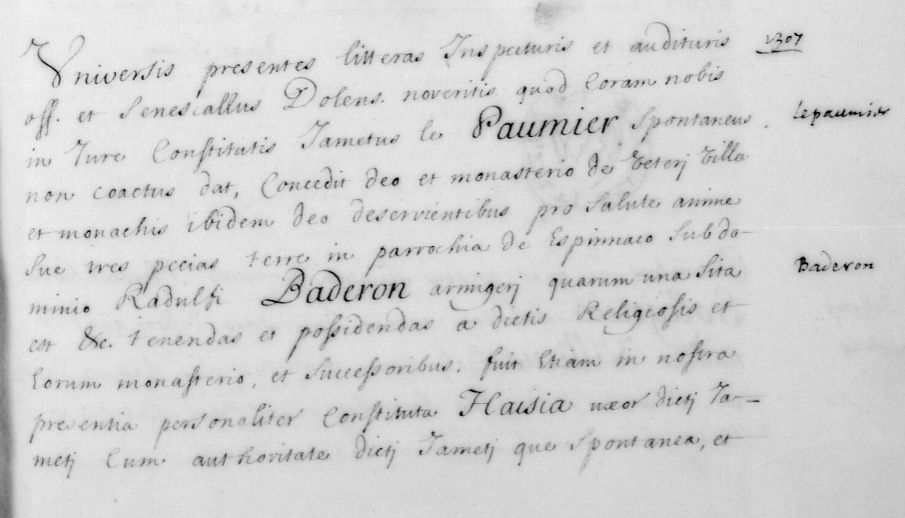 Universis presentes litteras Inspecturis et audituris
1307
off. et Senescallus Dolens. noveritis quod Coram nobis
in Jure Constitutis Jametus le Paumier Spontaneus
le paumier
non coactus dat, Concedit deo et monasterio de Veterj Villa
et monachis ibidem deo deservientibus pro Salute anime
Sue tres pecias terre in parrochia de Espinnaco Sub do-
minio Radulfi Baderon armigerj quarum una Sita
Baderon
est &c. tenendas et possidendas a dictis Religiosis et
Eorum monasterio, et Successoribus. fuit Etiam in nostra
presentia personaliter Constituta Haisia uxor dictj Ja-
metj Cum authoritate dictj Jametj que Spontanea, et